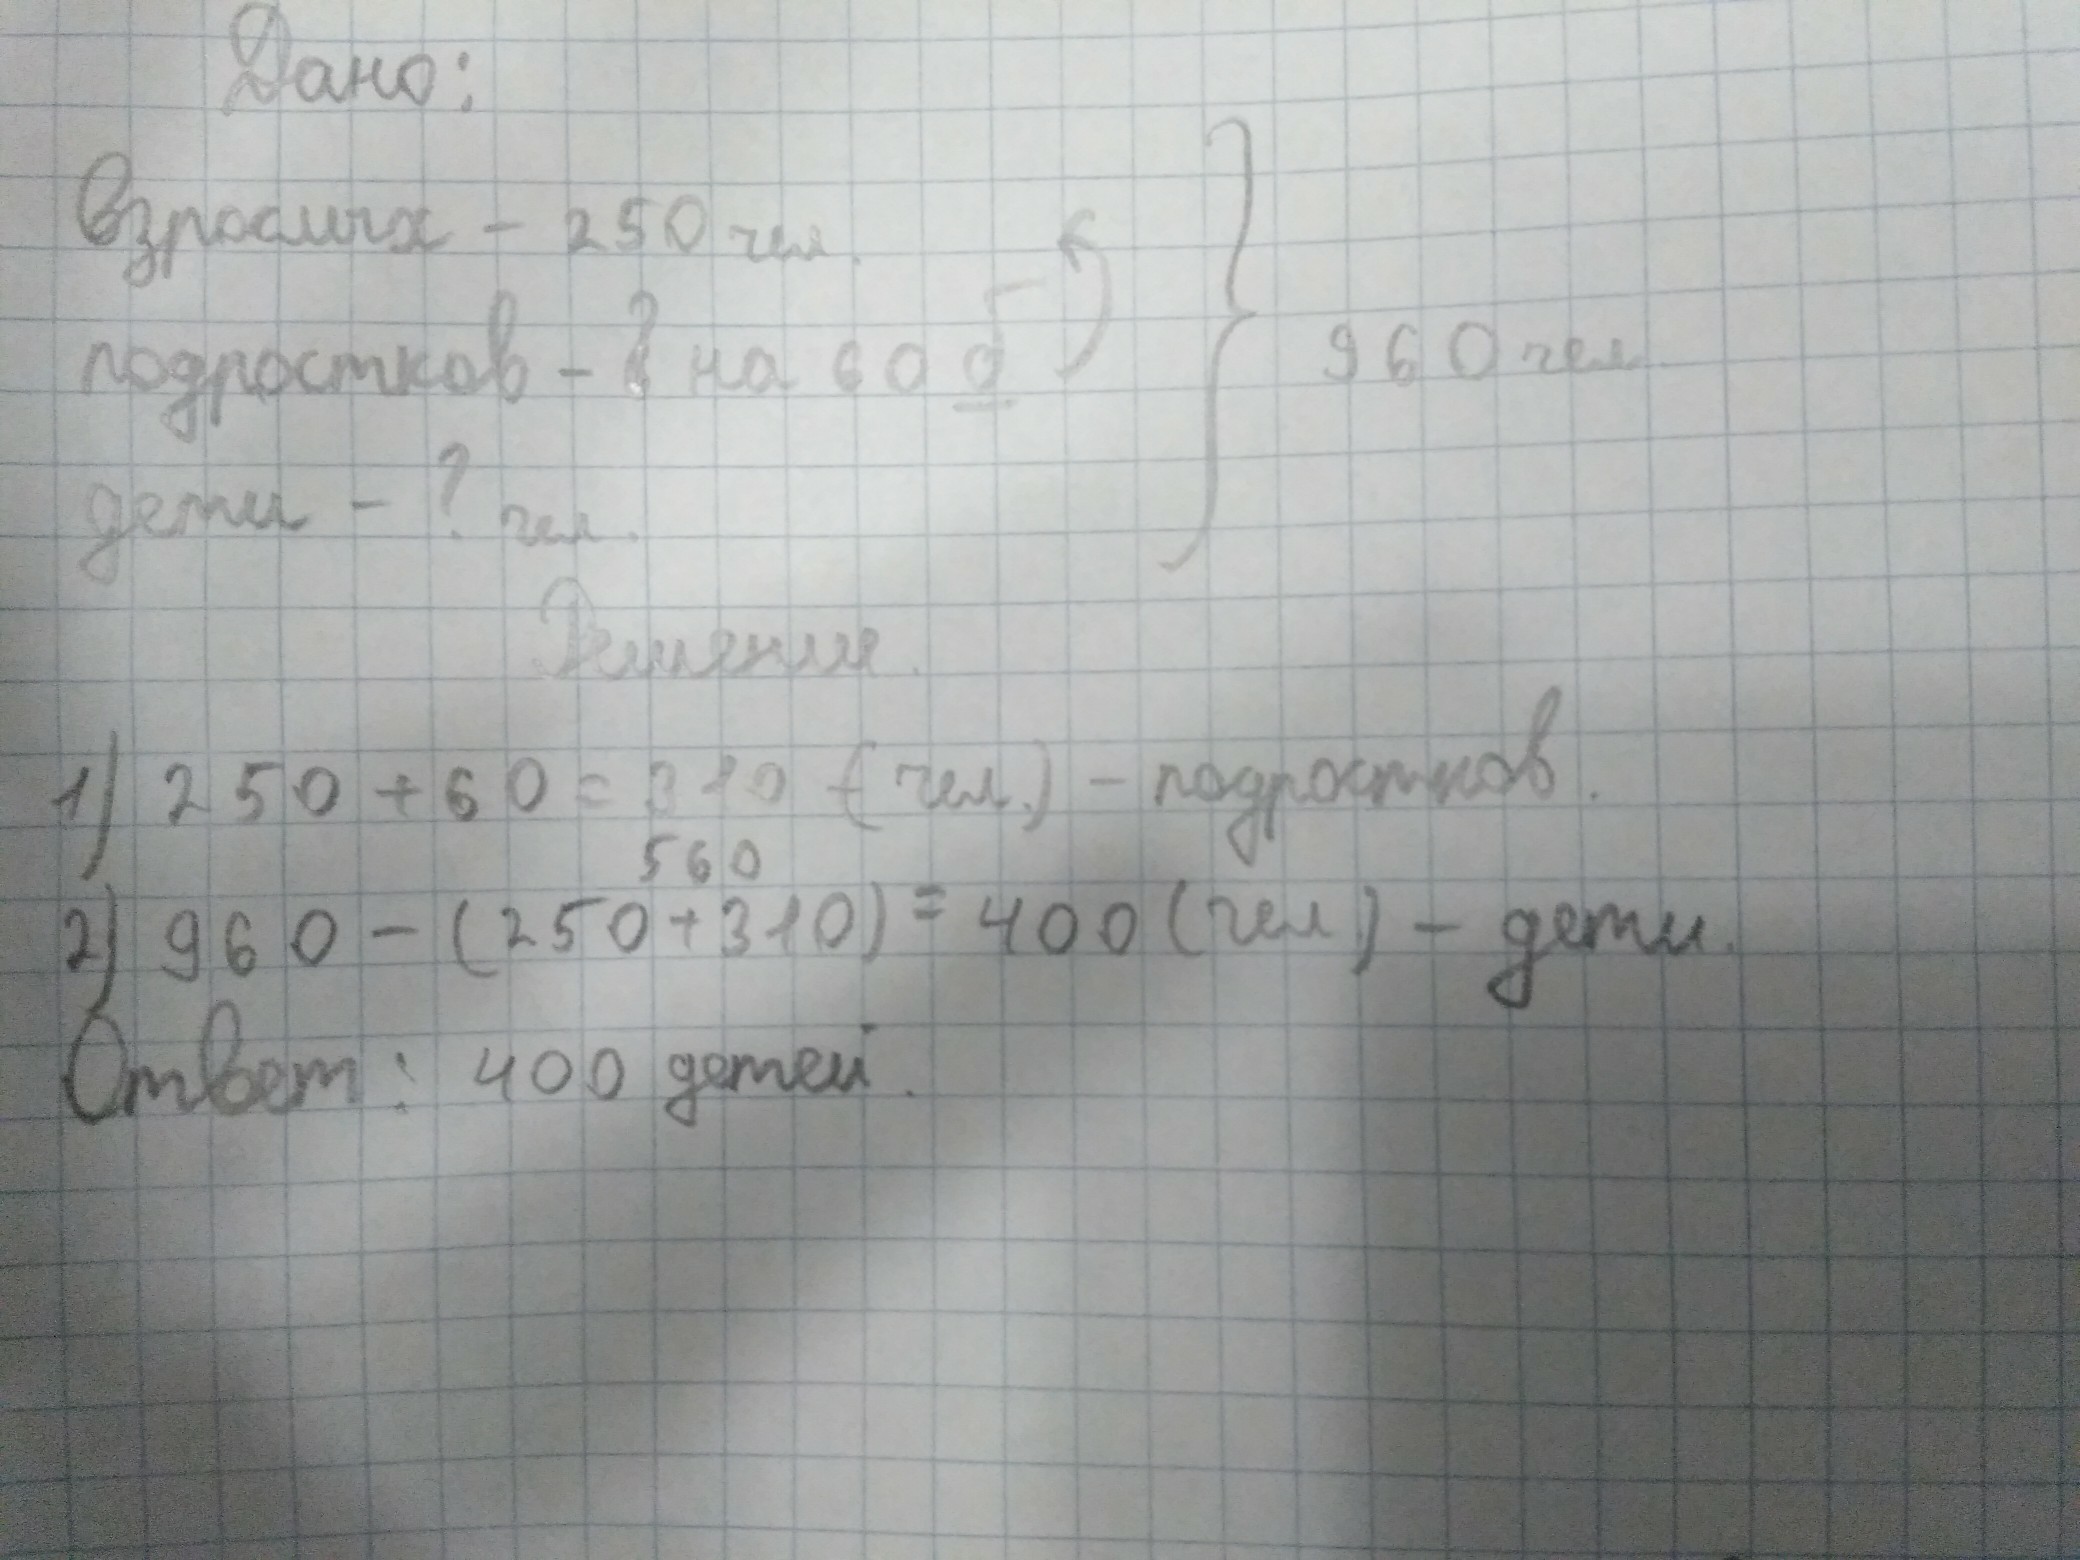 Дано:
Взрослых - 250 чел.
подростков - ? на 60 б
дети - ? чел.
960 чел
Решение.
1) 250 + 60 = 310 (чел.) - подростков.
560
2) 960 - (250 + 310) = 400 (чел.) - дети.
Ответ: 400 детей.